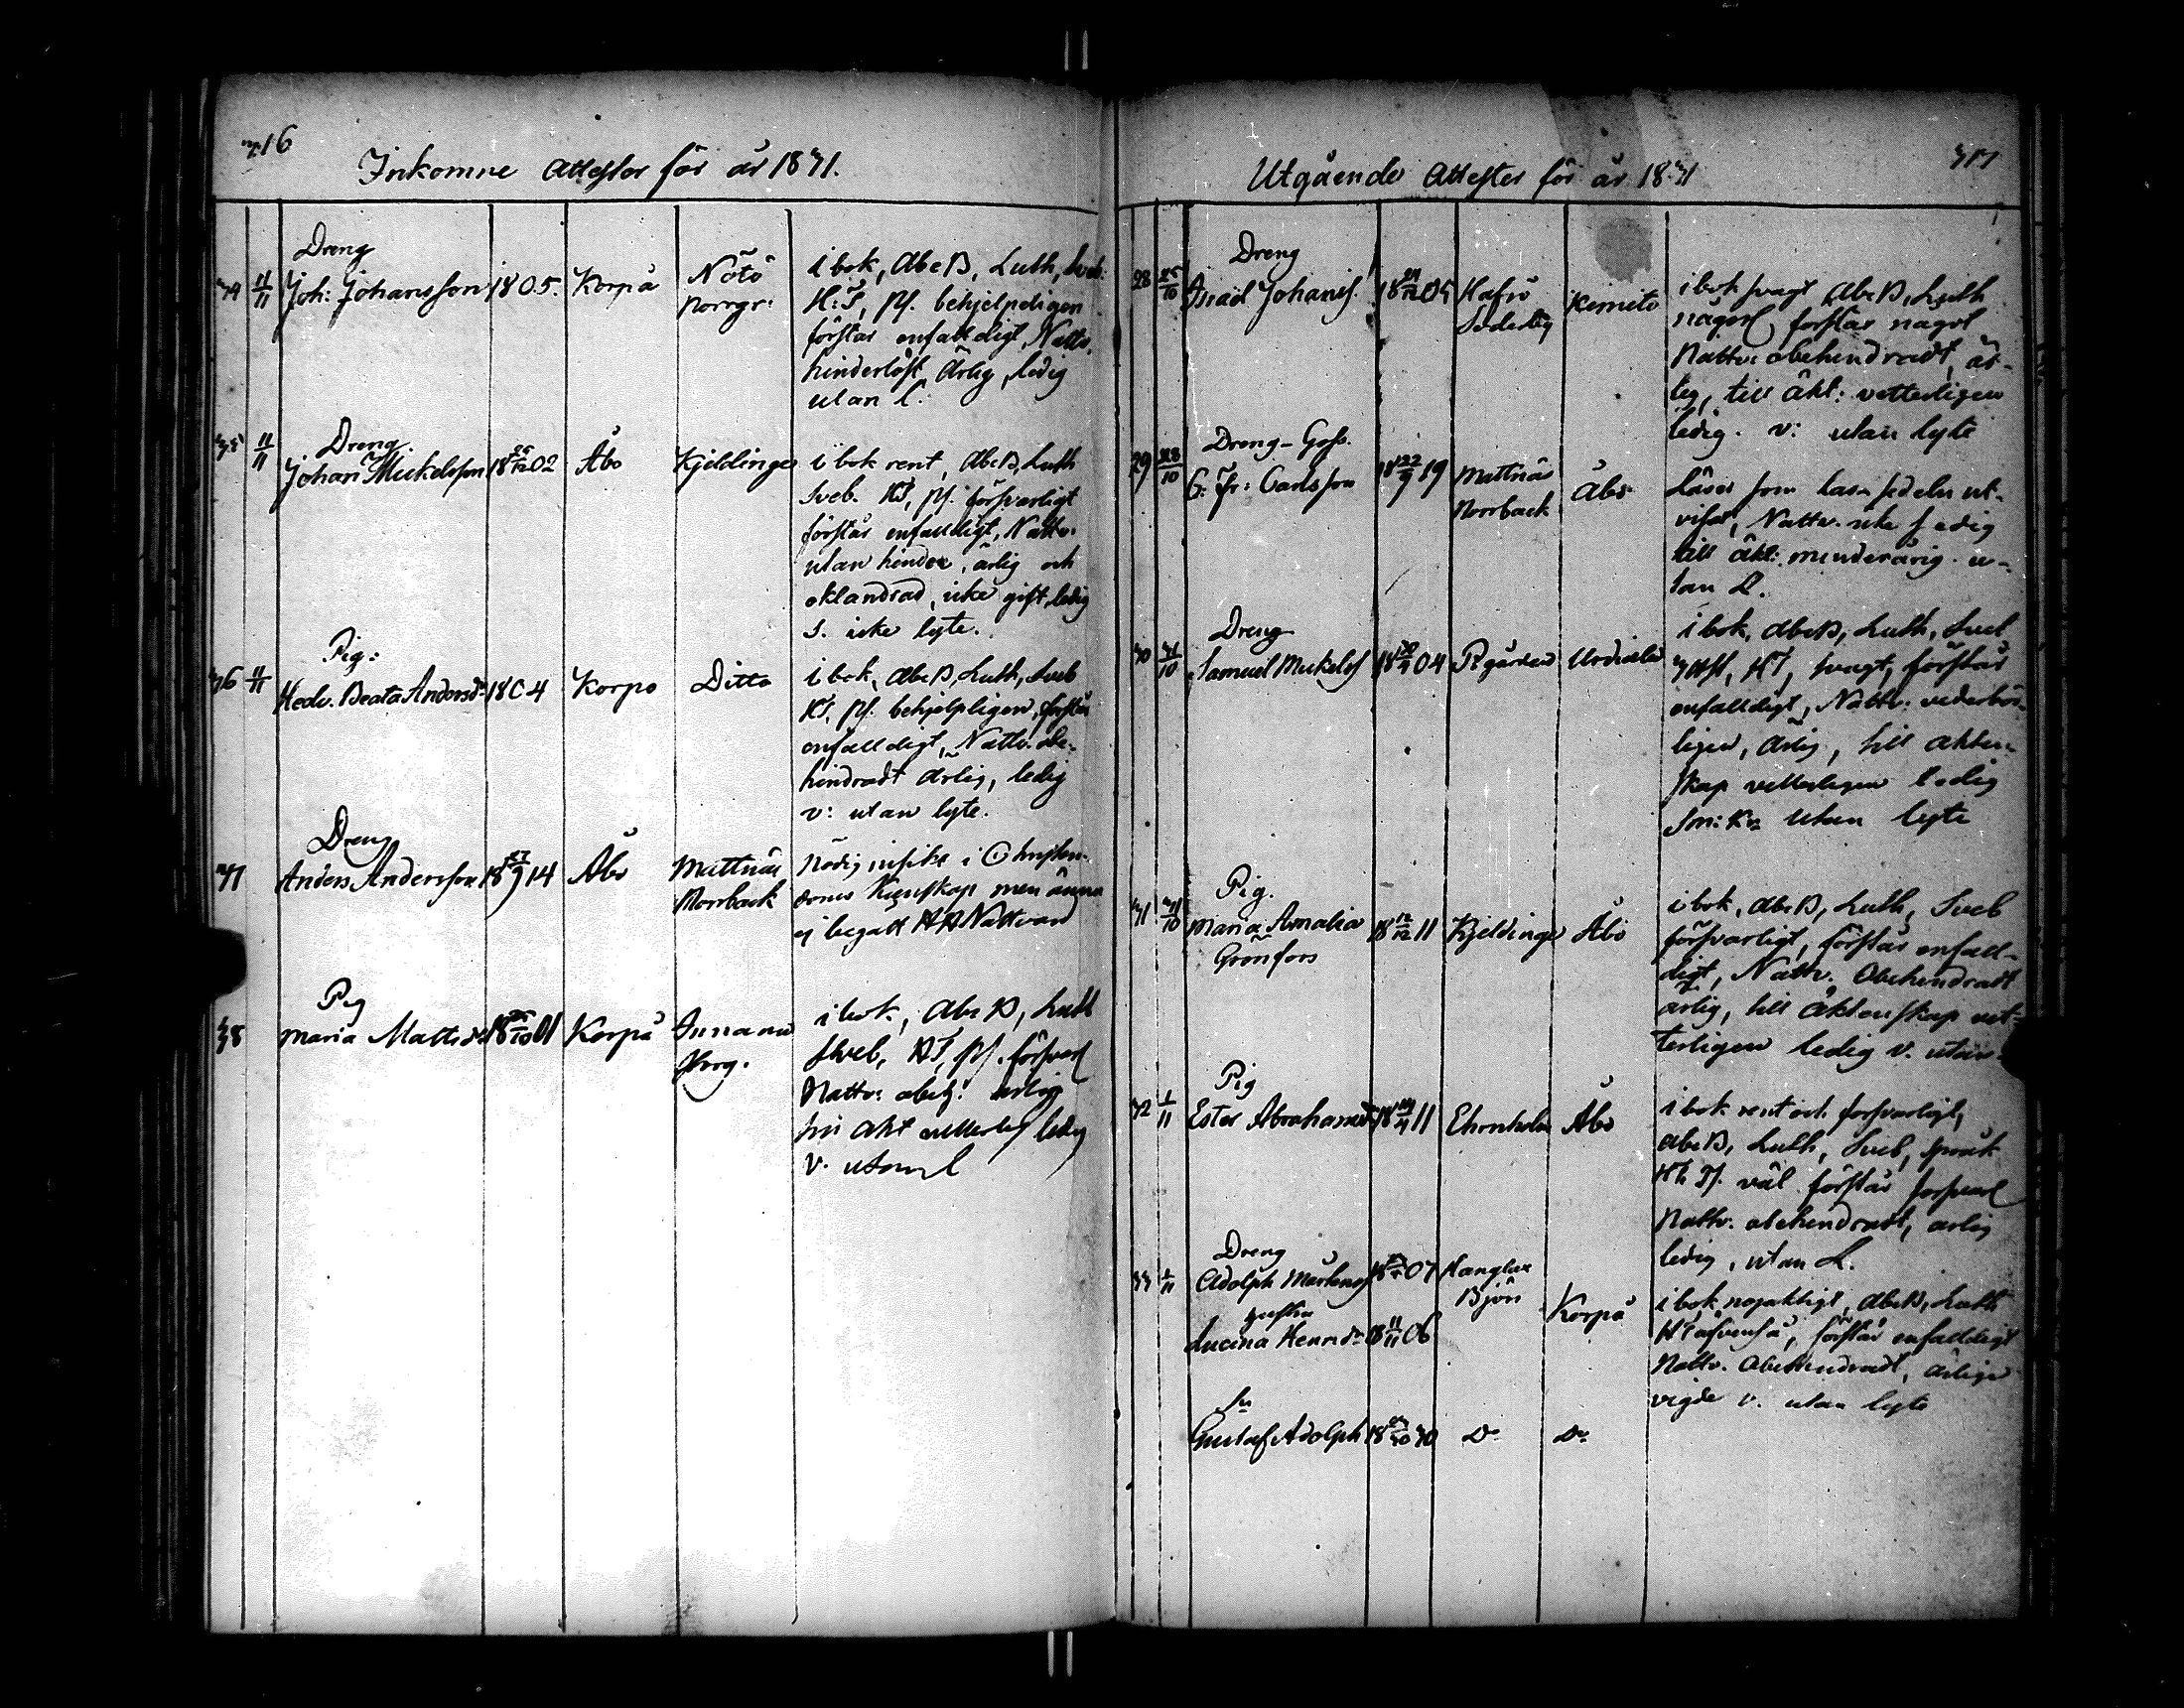 316
Inkomne Attester för år 1831.
34 11/11 Dreng
Joh: Johansson 1805. Korpå Nötö
Norrgr:
i bok, Abc B, Luth, Sveb:
H:T, ps. behjelpeligen
förstår enfalldigt, Nattv.
hinderlöst, Ärlig, ledig
utan l.
35 11/11 Dreng
Johan Mickelsson 18 02 Åbo Kjeldinge
i bok rent, AbcB, Luth
Sveb. HT, ps. försvarligt
förstår enfalldigt, Nattv.
utan hinder, ärlig och
oklandrad, icke gift, ledig
s. icke lyte.
36 11/11 Pig:
Hedv. Beata Andersdr 1804 Korpo Ditto
i bok, AbcB, Luth, Sveb
HT, ps. behjelpligen, förstår
enfalldigt, Nattv. obe-
hindradt ärlig, ledig
v: utan lyte.
37 Dreng
Anders Andersson 18 27/9 14 Åbo Mattnäs
Norrback
Nödig insikt i Christen-
doms Kunskap men ännu
ej begått HH Nattvard
38 Pig
Maria Mattsdr 18 01 Korpå
Norrg.
i bok, Abc B, Luth
Sveb, HT, ps. försvarl
Nattv: obeh: ärlig
till äkt vetterlig ledig
v. utan l
317
Utgående Attester för år 1831
28 25/10 Dreng
Israel Johanss. 18 05 Hafsö
Söderby Kemito
i bok svagt AbcB, Luth
någorl förstår någorl
Nattv: obehindradt, är-
lig, till äkt: vetterligen
ledig. v: utan lyte
29 28/10 Dreng-Goss.
G: Fr: Carlsson 18 22/9 19 Mattnäs
Norrback Åbo
Läser som läse sedeln ut-
visar, Nattv. icke ledig
till äkt: minderårig. u-
tan L.
30 31/10 Dreng
Samuel Mickelss 18 04 Pgården Urdiala
i bok, AbcB, Luth, Sveb
HT, svagt, förstår
enfalldigt, Nattv: vederbör-
ligen, ärlig, till äkten-
skap vetterligen ledig
utan lyte
31 31/10 Pig.
Maria Amalia
Grönfors 18 12/12 11 Kjeldinge Åbo
i bok, AbcB, Luth, Sveb
försvarligt, förstår enfall-
digt, Nattv. Obehindradt
ärlig, till äktenskap vet-
terligen ledig v. utan
32 1/11 Pig
Ester Abrahamsdr 18 11 Ehrnholm Åbo
i bok rent och försvarligt,
AbcB, Luth, Sveb, språk
Ht Ps. väl förstår försvarl
Nattv. obehindradt, ärlig
ledig, utan L.
33 1/11 Dreng
Adolph Mårtenss 18 07
Björs
hustru
Lucina Henrdr 18 11/11 06 Korpå
i bok nöjaktigt, AbcB, Luth
HT äfvenså, förstår enfaldigt
Nattv. Obehindradt, ärlige
vigde v. utan lyte
Sn
Gustaf Adolph 18 30 Do Do